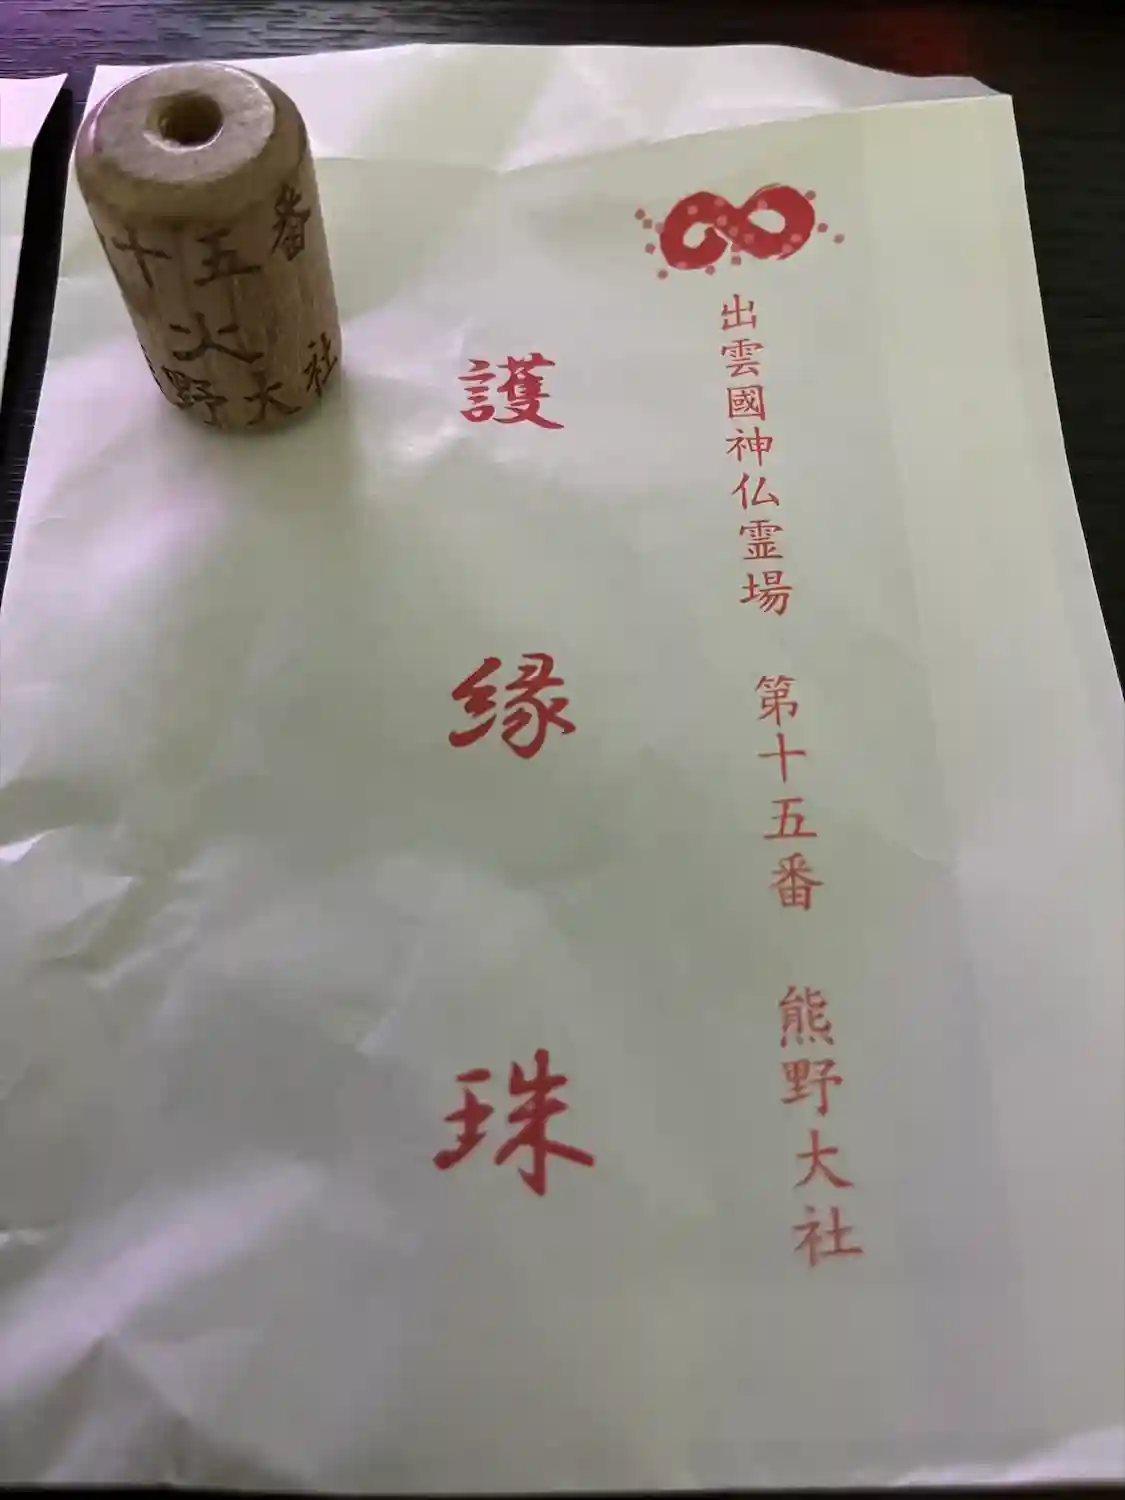 出雲國神仏霊場 第十五番 熊野大社
護縁珠
十五番
火
野大社